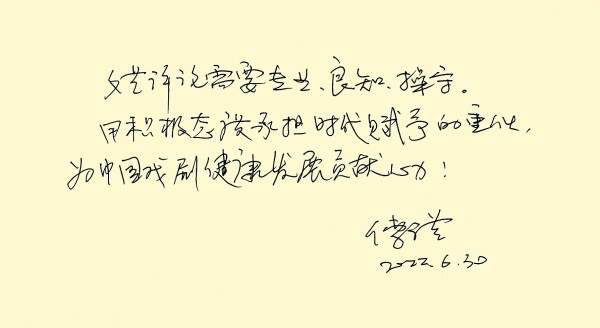 文艺评论需要专业、良知、操守。
用积极态度承担时代赋予的重任,
为中国戏剧健康发展贡献心力!
2022.6.30